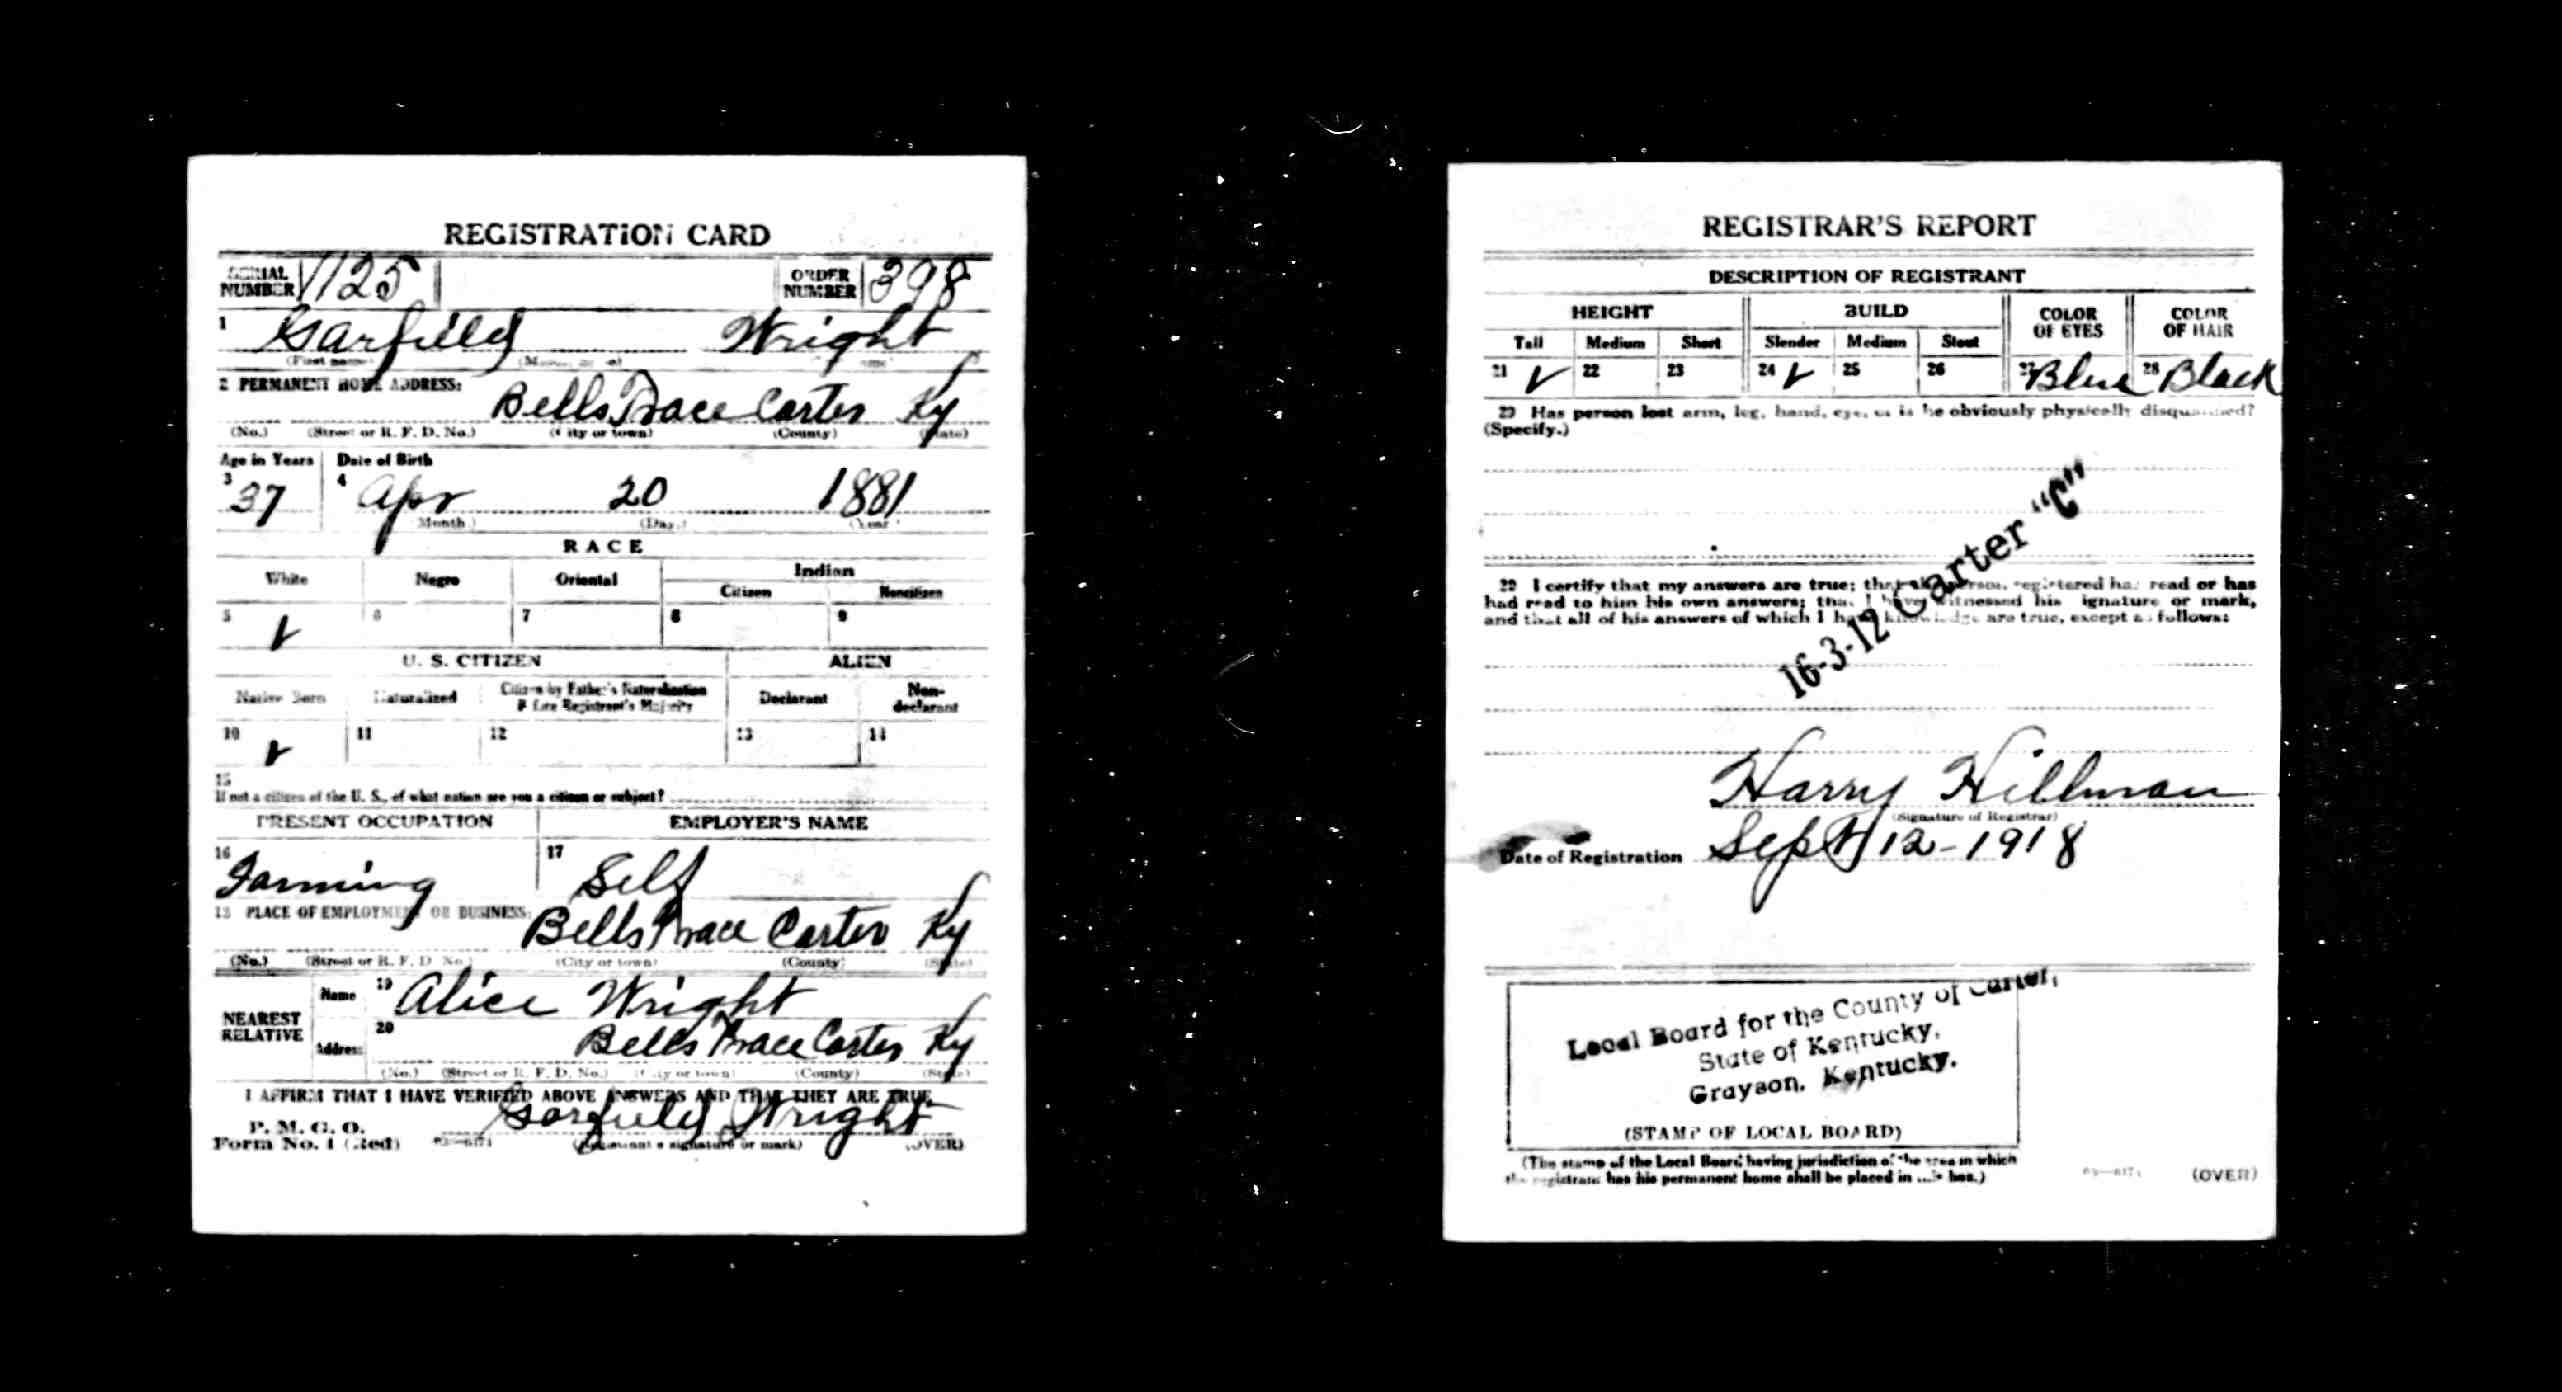 REGISTRATION CARD
SERIAL NUMBER 1125 ORDER NUMBER 398
1 Garfield Wright
(First name)
2 PERMANENT HOME ADDRESS:
Bells Trace Carter Ky
(No.) (Street or R. F. D. No.) (City or town) (County) (State)
Age in Years Date of Birth
3 37 4 Apr 20 1881
(Month.) (Day.) (Year.)
RACE
White Negro Oriental Indian
Citizen Noncitizen
5 ✓ 6 7 8 9
U. S. CITIZEN ALIEN
Native Born Naturalized Citizen by Father's Naturalization Before Registrant's Majority Declarant Non-declarant
10 ✓ 11 12 13 14
15
If not a citizen of the U. S., of what nation are you a citizen or subject?
PRESENT OCCUPATION EMPLOYER'S NAME
16 Farming 17 Self
18 PLACE OF EMPLOYMENT OR BUSINESS:
Bells Trace Carter Ky
(No.) (Street or R. F. D. No.) (City or town) (County) (State)
NEAREST RELATIVE
Name 19 Alice Wright
Address 20 Bells Trace Carter Ky
(No.) (Street or R. F. D. No.) (City or town) (County) (State)
I AFFIRM THAT I HAVE VERIFIED ABOVE ANSWERS AND THAT THEY ARE TRUE
P. M. G. O.
Form No. 1 (Red) Garfield Wright
(Registrant's signature or mark) (OVER)
REGISTRAR'S REPORT
DESCRIPTION OF REGISTRANT
HEIGHT BUILD COLOR OF EYES COLOR OF HAIR
Tall Medium Short Slender Medium Stout
21 ✓ 22 23 24 ✓ 25 26 27 Blue 28 Black
29 Has person lost arm, leg, hand, eye, or is he obviously physically disqualified?
(Specify.)
30 I certify that my answers are true; that the person registered has read or has
had read to him his own answers; that I have witnessed his signature or mark,
and that all of his answers of which I have knowledge are true, except as follows:
16-3-12 Carter "C"
Harry Hillman
(Signature of Registrar)
Date of Registration Sept 12-1918
Local Board for the County of Carter,
State of Kentucky,
Grayson, Kentucky.
(STAMP OF LOCAL BOARD)
(The stamp of the Local Board having jurisdiction of the area in which
the registrant has his permanent home shall be placed in this box.)
(OVER)